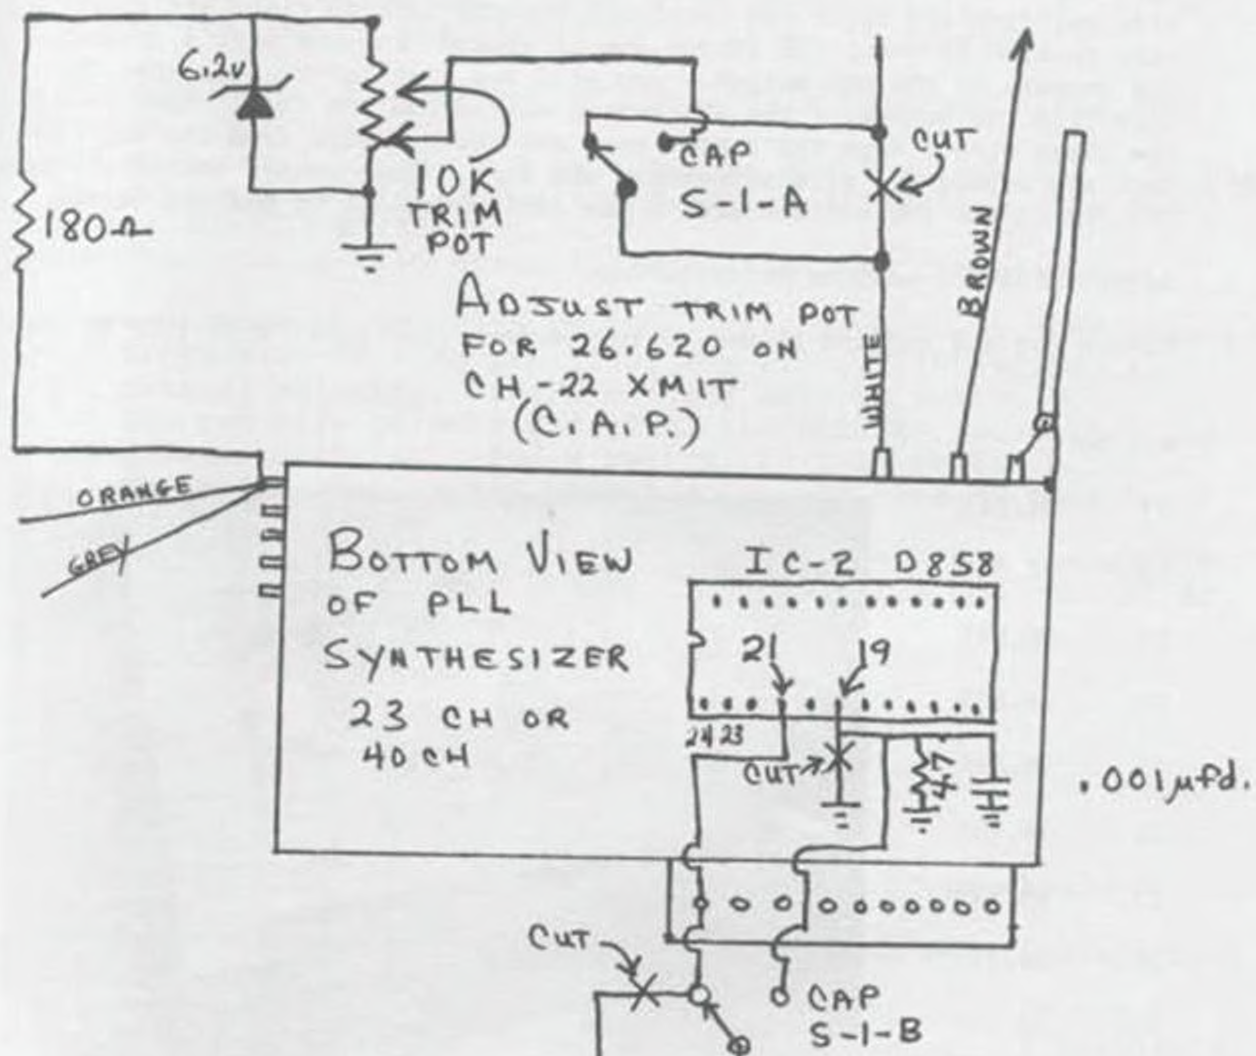 6.2v
180Ω
10K
TRIM
POT
CAP
S-1-A
CUT
BROWN
WHITE
ADJUST TRIM POT
FOR 26.620 ON
CH-22 XMIT
(C.A.P.)
ORANGE
GREY
BOTTOM VIEW
OF PLL
SYNTHESIZER
23 CH OR
40 CH
IC-2 D858
21
19
24 23
CUT
4.7
.001µfd.
CUT
CAP
S-1-B